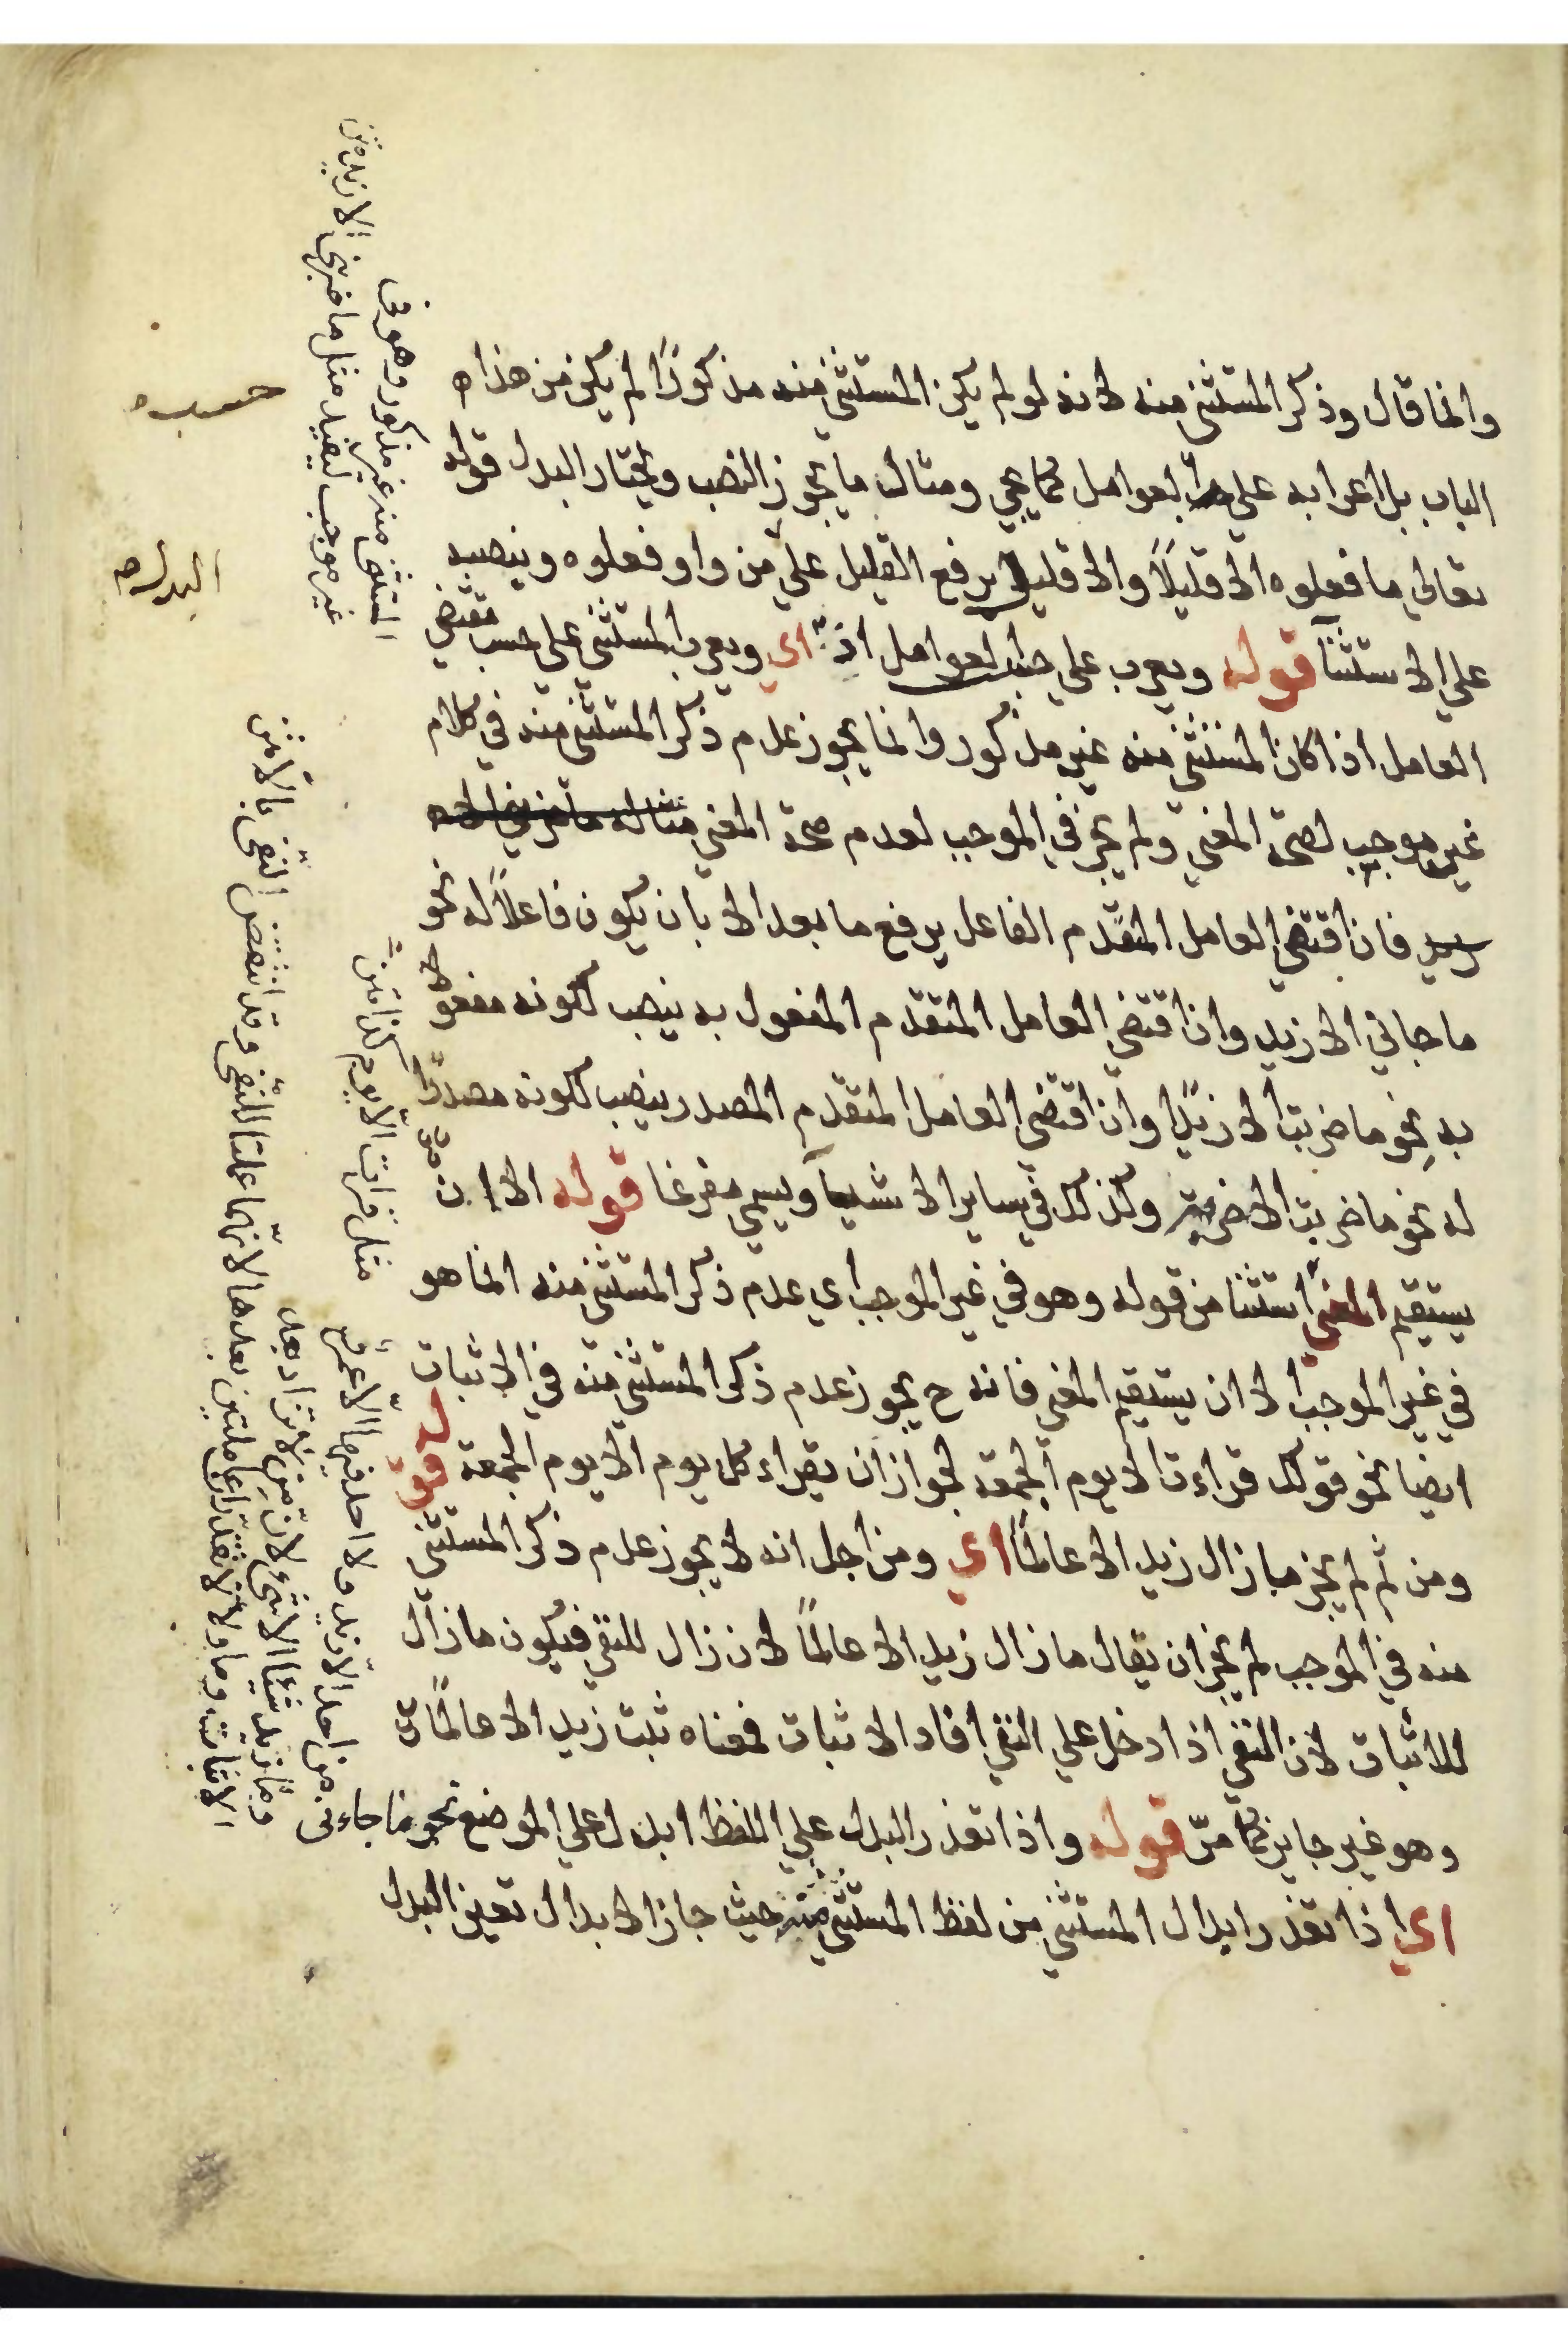 وانما قال وذكر المستثنى منه لانه لو لم يكن المستثنى منه مذكورًا لم يكن من هذا
الباب بل اعرابه على العوامل كما يجي ومثال ما يجوز النصب ويختار البدل قوله
تعالى ما فعلوه الا قليلًا والا قليل برفع القليل على من واو فعلوه وبنصبه
على الاستثنآ قوله ويعرب على حسب العوامل اذا اي ويعرب المستثنى على حسب مقتضى
العامل اذا كان المستثنى منه غير مذكور وانما يجوز عدم ذكر المستثنى منه في كلام
غير موجب لصحة المعنى ولم يجز في الموجب لعدم صحة المعنى مثاله ما ضربني الا
زيد فان اقتضى العامل المتقدم الفاعل يرفع ما بعد الا بان يكون فاعلًا له نحو
ما جاني الا زيد وان اقتضى العامل المتقدم المفعول به ينصب لكونه مفعولا
به نحو ما ضربت الا زيدًا وان اقتضى العامل المتقدم المصدر ينصب لكونه مصدرًا
له نحو ما ضربت الا ضربة وكذلك في ساير الاشيآ ويسمى مفرغا قوله الا ان
يستقيم المعنى استثنا من قوله وهو في غير الموجب اي عدم ذكر المستثنى منه انما هو
في غير الموجب الا ان يستقيم المعنى فانه ح يجوز عدم ذكر المستثنى منه في الاثبات
ايضا نحو قولك قراءت الا يوم الجمعة لجواز ان تقراء كل يوم الا يوم الجمعة قوله
ومن ثم لم يجز ما زال زيد الا عالمًا اي ومن اجل انه لا يجوز عدم ذكر المستثنى
منه في الموجب لم يجز ان يقال ما زال زيد الا عالمًا لان زال للنفي فيكون ما زال
للاثبات لان النفي اذا دخل على النفي افاد الاثبات فمعناه ثبت زيد الا عالمًا
وهو غير جايز كما مرّ قوله واذا تعذر البدل على اللفظ ابدل على الموضع نحو ما جاءنى
اي اذا تعذر ابدال المستثنى من لفظ المستثنى منه حيث جاز الابدال تعين البدل
حسب
البدل
المستثنى منه غير مذكور وهو فى
غير موجب ليفيد مثل ما ضربنى الا زيد متن
مثل قرأت الا يوم كذا متن
من احد الا زيد ولا احد فيها الا عمرو
وما زيد شيئا الا شىء لان من لا تزاد بعد
الاثبات وما ولا لا تقدران عاملتين بعدها لانهما عملتا للنفى وقد انتقض النفى بالا متن